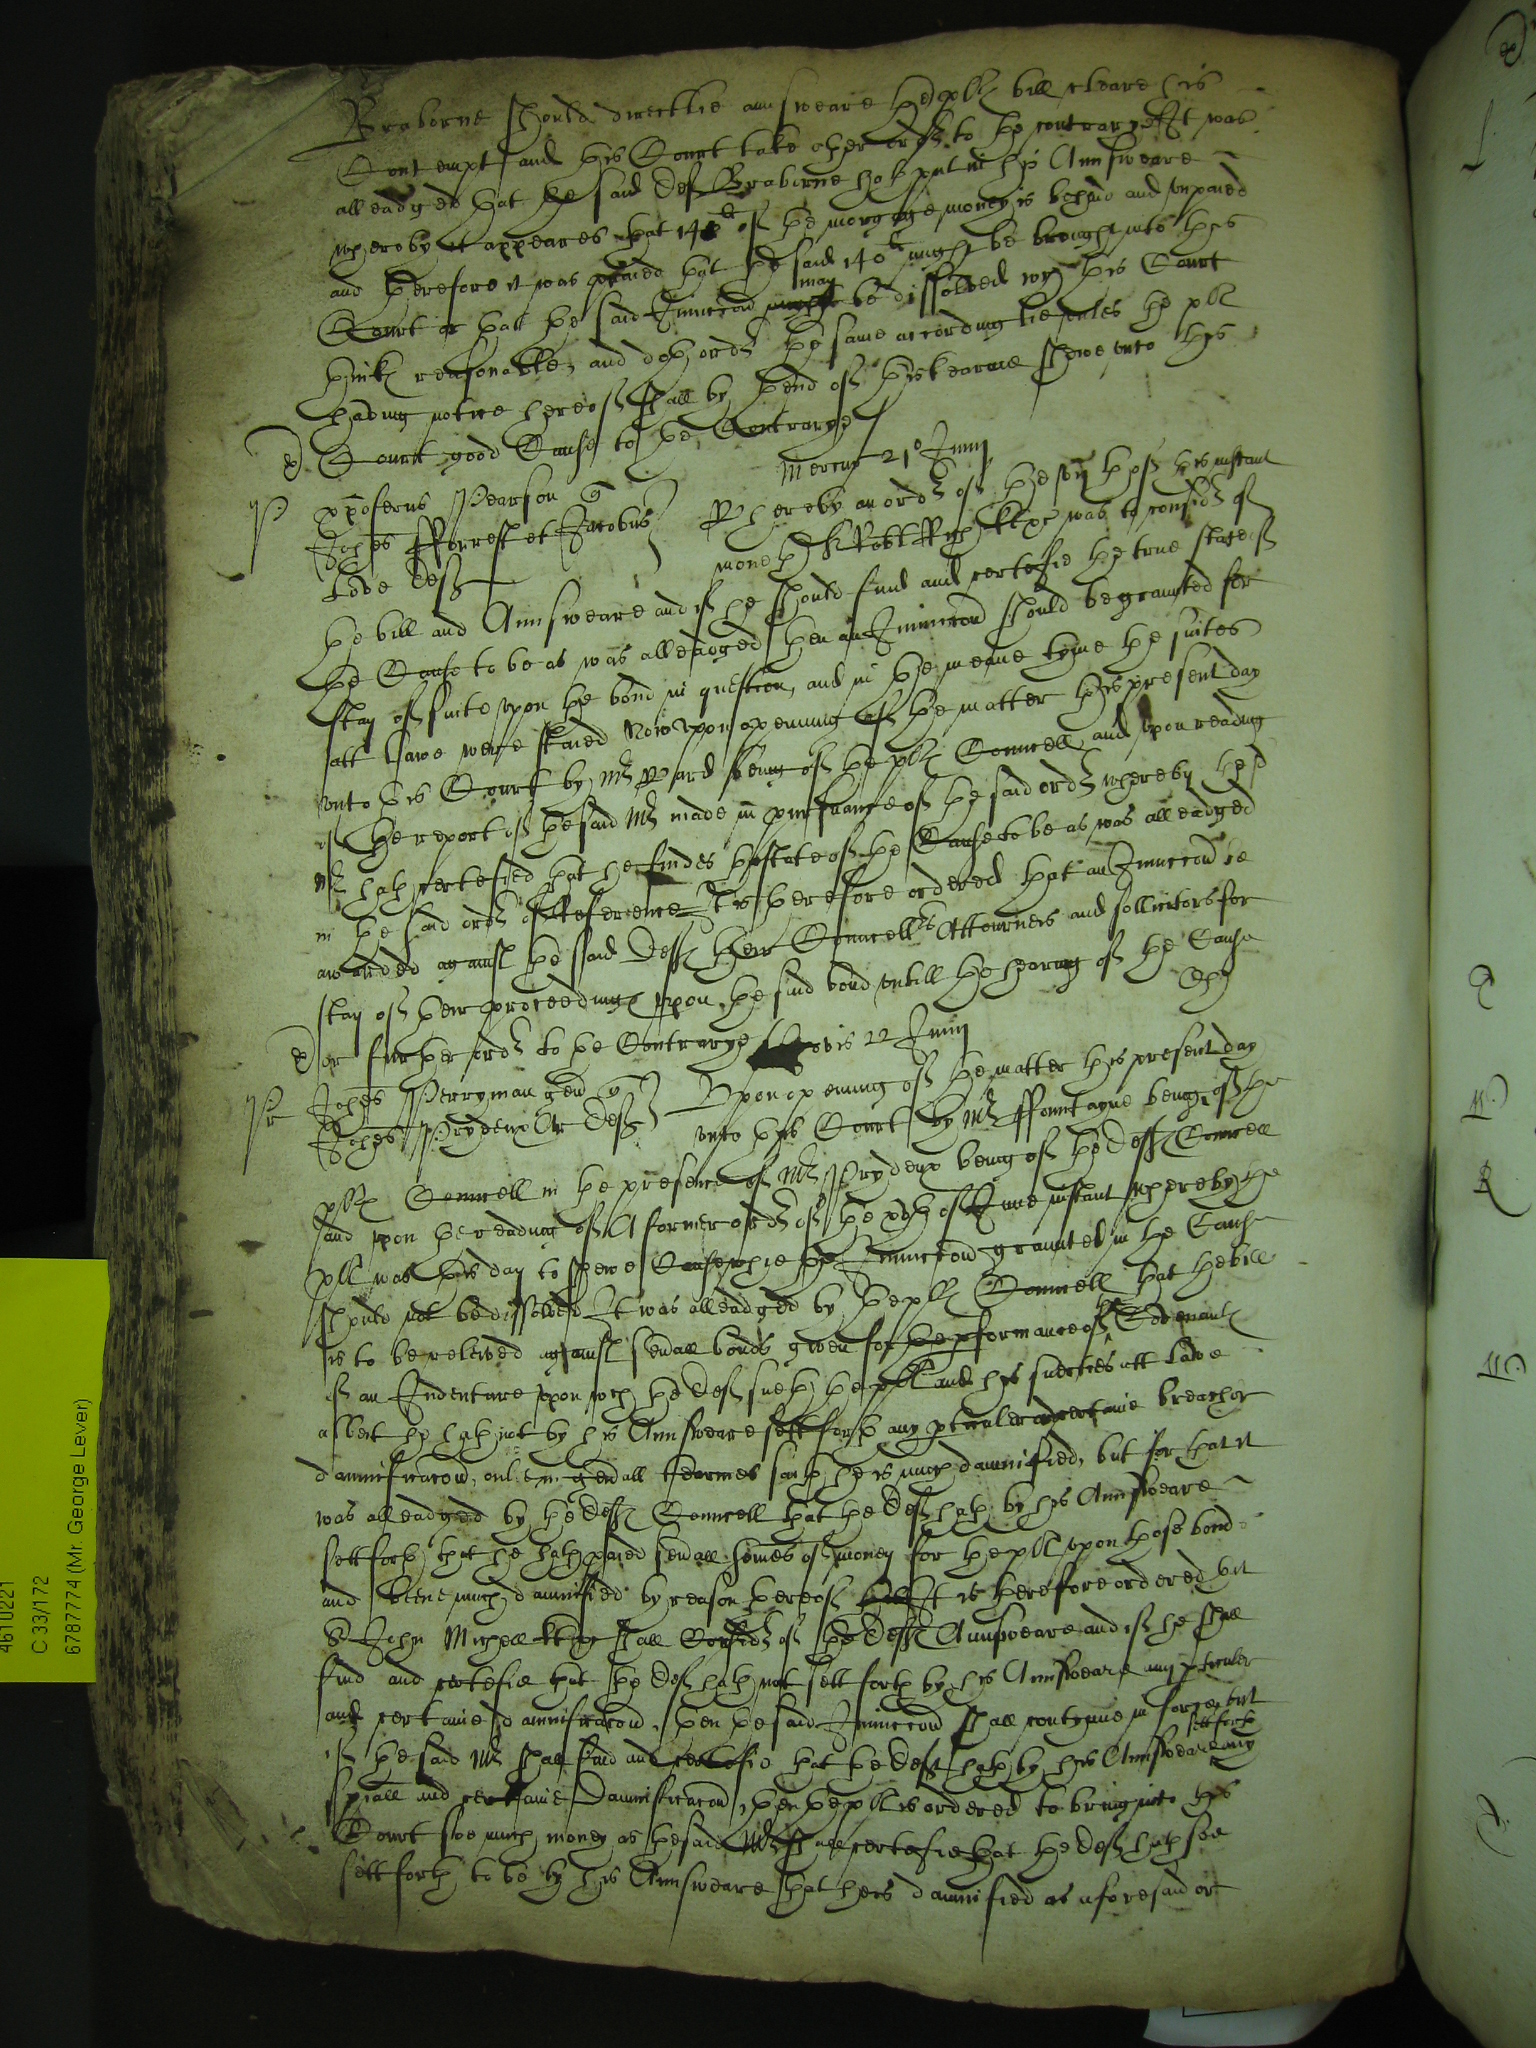 Braborne should directlie aunsweare the pltes bill cleare his
Contempt and this Court take other ordr to the contrarye It was
alleadged that the said deft Braborne hath put in his Aunsweare
whereby it appeares that 140li of the morgage money is behind and unpaied
and therefore it was praied that the said 140li might be brought into this
Court or that the said Iniunccon may be dissolved wch this Court
thinks reasonable, and doth ordr the same accordinglie unles the plt
having notice hereof shall by thend of this tearme shewe unto this
Court good Cause to the Contrarye
Mercurij 21o Junij
xpoferus Pearson q
Johes Fforrest et Jacobus
Love defts
Whereby an ordr of the
moneth Sr Robt Rych kt was to considr of
the bill and Aunsweare and if he should find and certefie the true state of
the Cause to be as was alleadged then an Iniunccon should be graunted for
stay of suite upon the bond in question, and in the meane tyme the suites
att Lawe were staied Now upon opening of the matter this present day
unto this Court by Mr Ward being of the pltes Councell and upon reading
of the report of the said Mr made in pursuance of the said ordr whereby the sd
Mr hath certefied that he findes the state of the Cause to be as was alleadged
in the said ordr of Reference It is therefore ordered that an Iniunccon be
awarded against the said defts their Councells Attourneis and sollicitors for
stay of their proceedings upon the said bond untill the hearing of the Cause
or further ordr to the Contrarye
Jovis 22 Junij
Johes Perryman gen q
Johes Prydeux Ar deft
Upon opening of the matter this present day
unto this Court by Mr Ffountayne being of the
pltes Councell in the presence of Mr Prydeux being of the defts Councell
and upon the reading of A former ordr of the xvth of June instant whereby the
plt was this day to shewe Cause whie the Iniunccon graunted in the Cause
should not be dissolved It was alleadged by the pltes Councell that the bill
is to be releived against sevall bonds given for the pformance of the Covenants
of an Indenture upon wch the deft sueth the plt and his suerties att Lawe
albeit he hath not by his Aunsweare sett forth any pticuler or certaine breach or
damnificacon, onlie in genall tearmes saith he is much damnified, but for that it
was alleadged by the defts Councell that the deft hath by his Aunsweare
sett forth that he hath paied sevall somes of money for the plt upon those bonds
and beene much damnified by reason thereof It is therefore ordered that
Sr John Michell kt shall Considr of the defts Aunsweare and if he shall
find and certefie that the deft hath not sett forth by his Aunsweare any pticuler
and certaine damnificacon, then the said Iniunccon shall contynue in force but
if the said Mr shall find and certefie that the deft hath by his Aunsweare sett forth any
spiall and certaine Damnificacon, then the plt is ordered to bring into this
Court soe much money as the said Mr shall certefie that the deft hath soe
sett forth to be by his Aunsweare that he is damnified as aforesaid or
4610221
C 33/172
6787774 (Mr. George Lever)